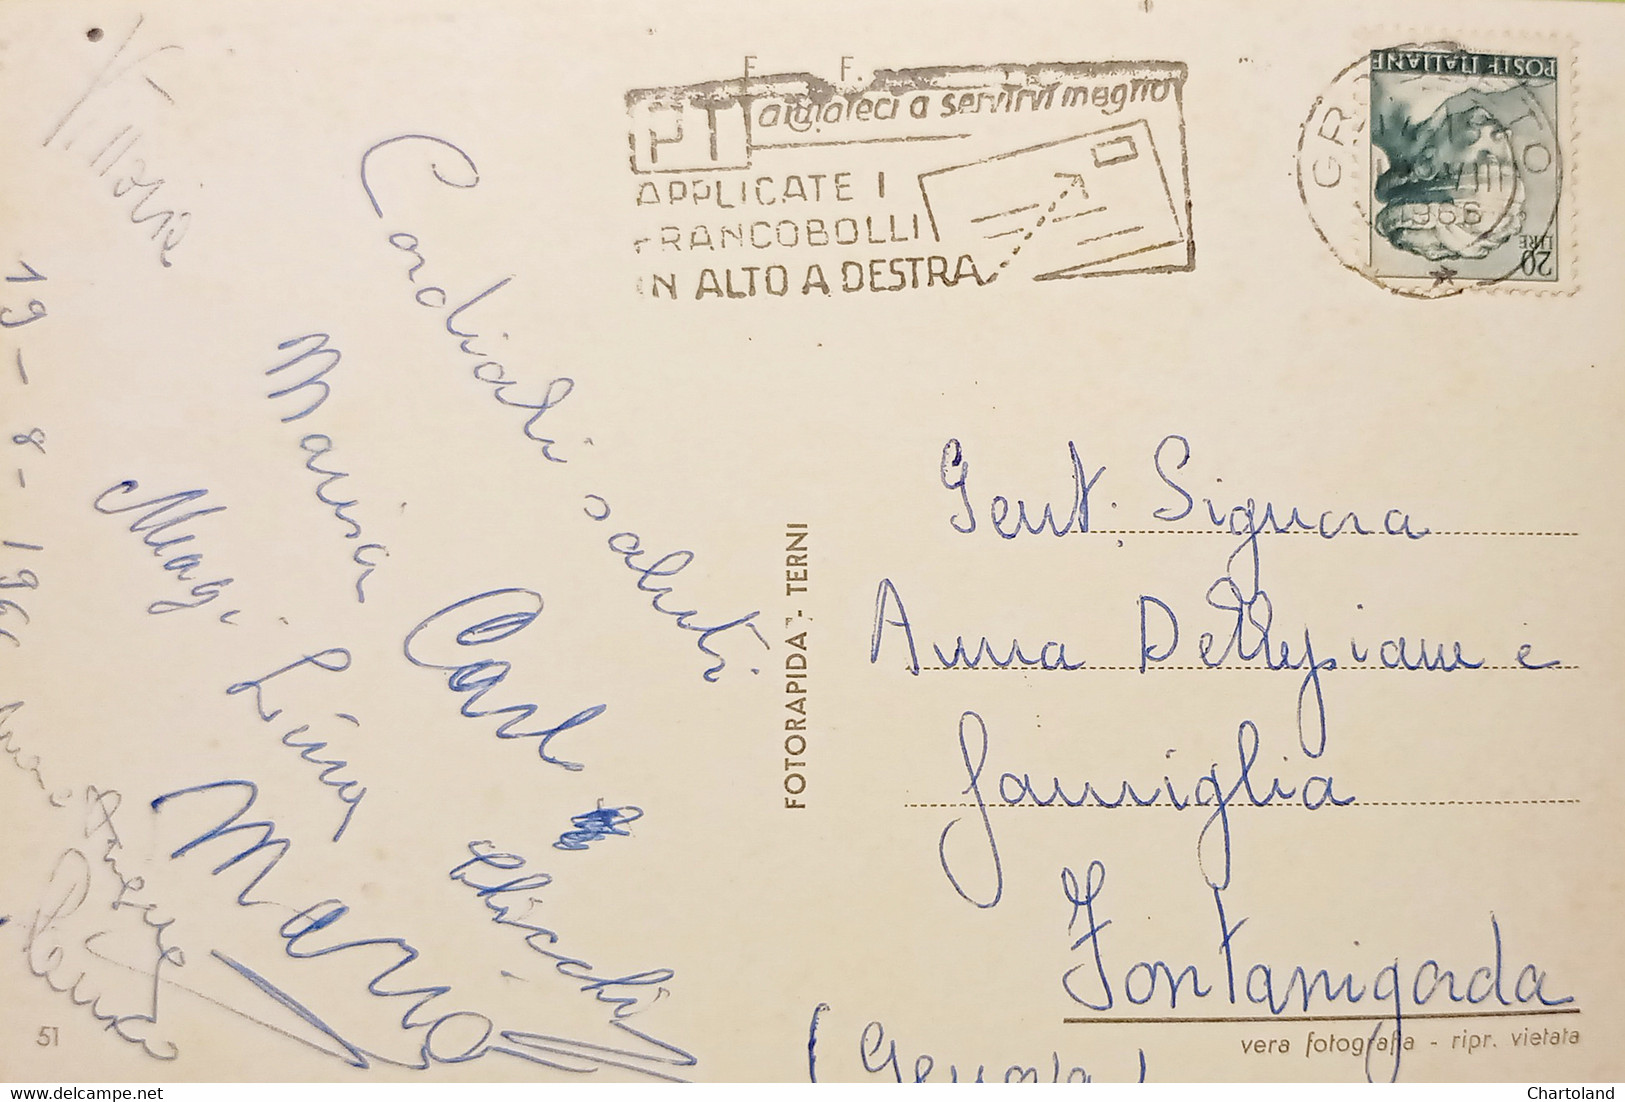 Vittoria
19-8-1966
Cordiali saluti
Maria
Carlo
Magi
Lina
Chicchi
Mario
51
FOTORAPIDA - TERNI
PT aiutateci a servirvi meglio
APPLICATE I
FRANCOBOLLI
IN ALTO A DESTRA
POSTE ITALIANE
LIRE 20
1966
Gent. Signora
Anna Dellepiane e
famiglia
Fontanigorda
(Genova)
vera fotografia - ripr. vietata
Chartoland
delcampe.net